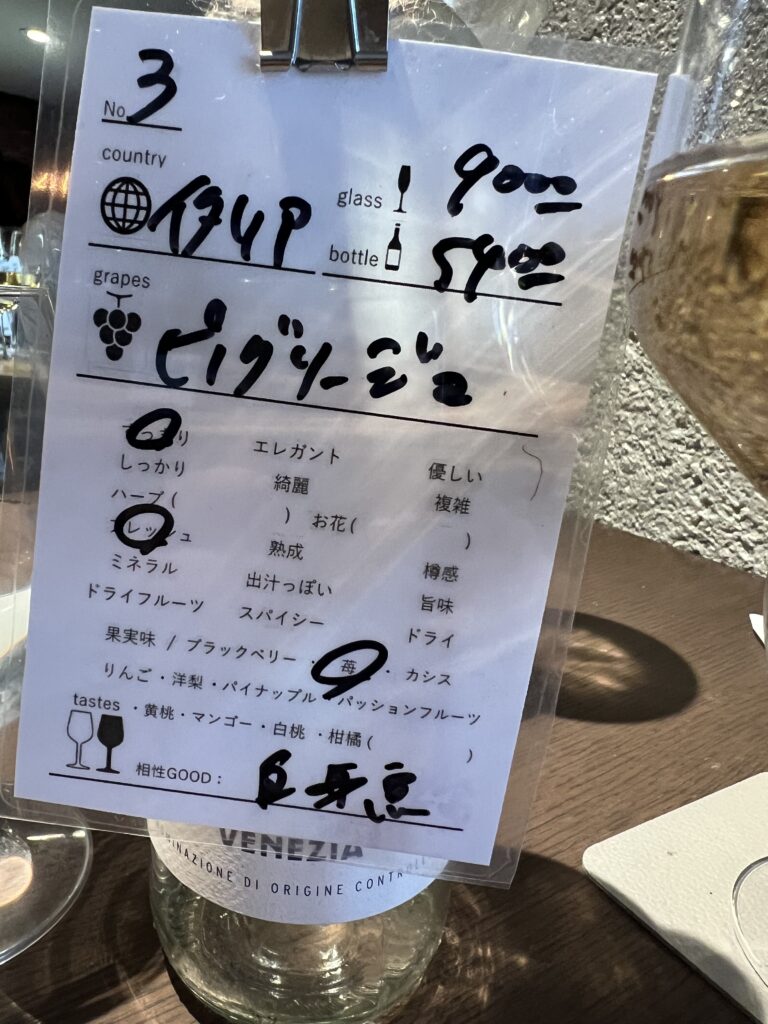 No. 3
country
イタリア
glass 900
bottle 5400
grapes
ピノグリージュ
すっきり エレガント 優しい
しっかり 綺麗 複雑
ハーブ( ) お花( )
フレッシュ 熟成 樽感
ミネラル 出汁っぽい 旨味
ドライフルーツ スパイシー ドライ
果実味 / ブラックベリー ・ 苺 ・ カシス
りんご・洋梨・パイナップル・パッションフルーツ
tastes ・黄桃・マンゴー・白桃・柑橘( )
相性GOOD： 白身魚
VENEZIA
INAZIONE DI ORIGINE CONTR